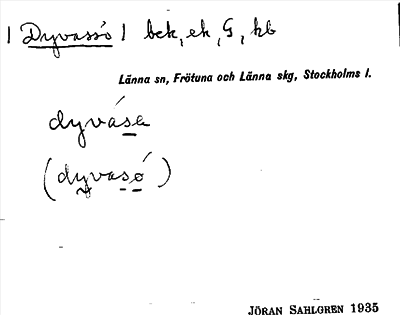 | Dyvassö | bek, ek, G, hb
Länna sn, Frötuna och Länna skg, Stockholms l.
dyvása
(dyvasǿ)
JÖRAN SAHLGREN 1935